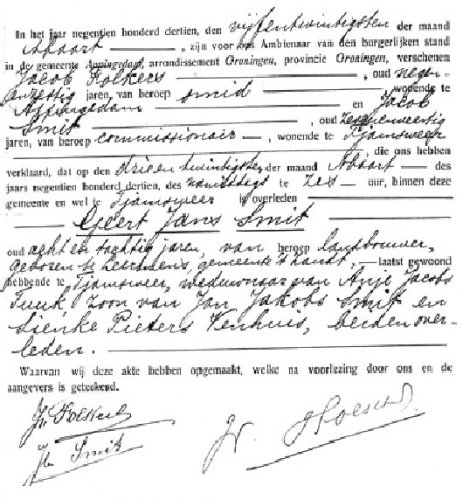 In het jaar negentien honderd dertien, den vijfentwintigsten der maand
Maart, zijn voor ons Ambtenaar van den burgerlijken stand
in de gemeente Appingedam, arrondissement Groningen, provincie Groningen, verschenen
Jacob Folkers, oud negen
en jaren, van beroep smid, wonende te
Appingedam en Jacob
Smit, oud zevenenveertig
jaren, van beroep commissionair, wonende te Tjamsweer
, die ons hebben
verklaard, dat op den drieentwintigsten der maand Maart des
jaars negentien honderd dertien, des namiddags te zes uur, binnen deze
gemeente en wel te Tjamsweer is overleden
Geert Jans Smit
oud acht en tachtig jaren, van beroep landbouwer,
geboren te Leermens, gemeente 't Zandt, laatst gewoond
hebbende te Tjamsweer, weduwnaar van Anje Jacobs
Tuuk, zoon van Jan Jakobs Smit en
Sienke Pieters Venhuis, beiden over-
leden.
Waarvan wij deze akte hebben opgemaakt, welke na voorlezing door ons en de
aangevers is geteekend.
Jb Folkers
Jb Smit